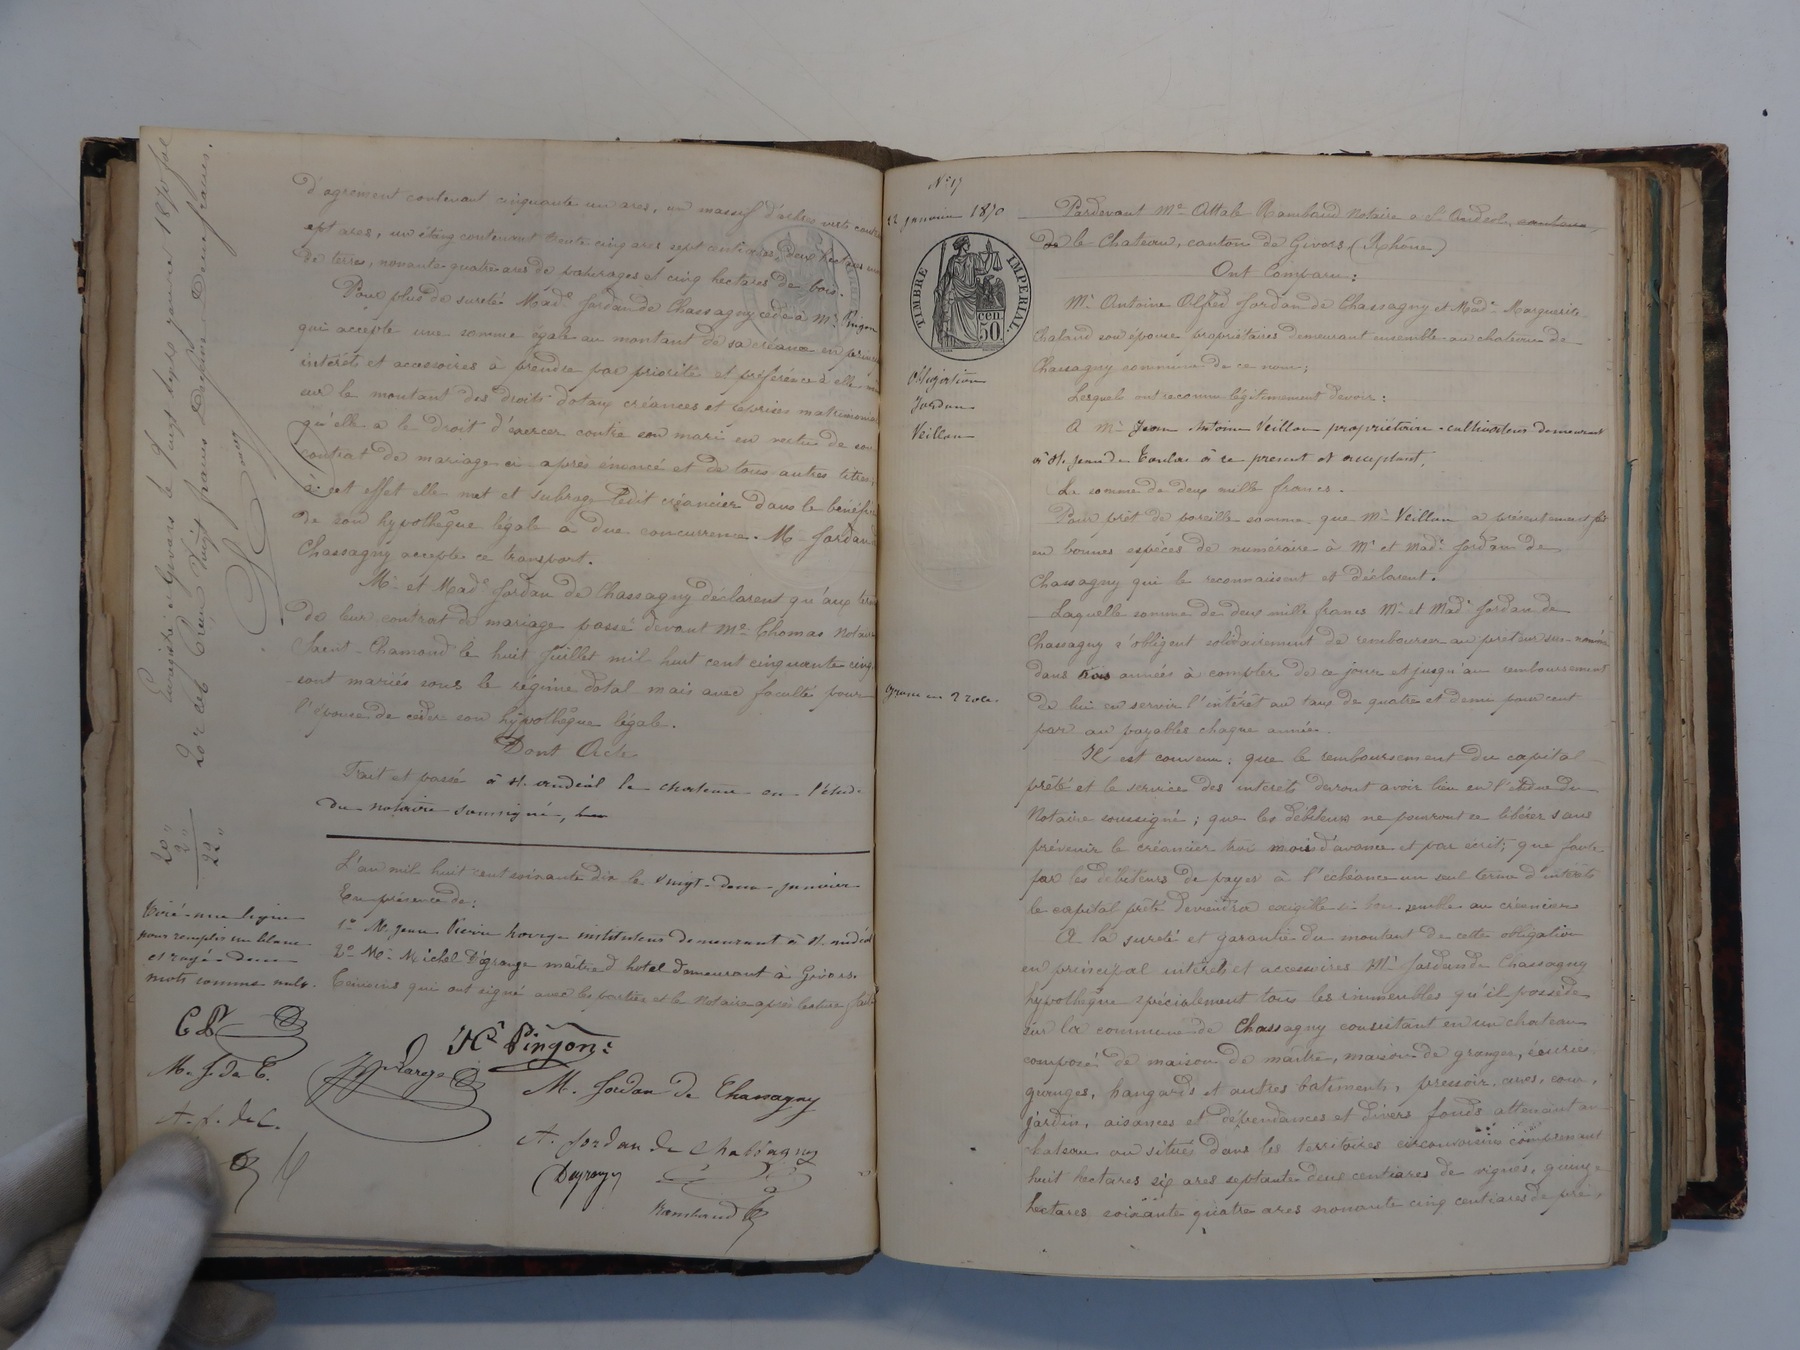 d'agrement contenant cinquante un ares, un massif d'arbres verts
sept ares, un étang contenant trente cinq ares sept centiares, deux hectares
de terres, nonante quatre ares de paturages et cinq hectares de bois.
Pour plus de sureté Made Jordan de Chassagny cède à Mr Pingon
qui accepte une somme égale au montant de sa créance en principal
intérêt et accessoires à prendre par priorité et préférence à elle
sur le montant des droits dotaux créances et reprises matrimoniales
qu'elle a le droit d'exercer contre son mari en vertu de son
contrat de mariage ci après énoncé et de tous autres titres,
à cet effet elle met et subroge ledit créancier dans le bénéfice
de son hypothèque légale a due concurrence. Mr Jordan de
Chassagny accepte ce transport.
Mr et Made Jordan de Chassagny déclarent qu'aux termes
de leur contrat de mariage passé devant Me Thomas Notaire
Saint-Chamond le huit Juillet mil huit cent cinquante cinq
sont mariés sous le régime dotal mais avec faculté pour
l'épouse de céder son hypothèque légale.
Dont Acte
Fait et passé à St andéol le chateau en l'étude
du notaire soussigné,
L'an mil huit cent soixante dix le vingt-deux janvier
En présence de:
1o Mr jean Pierre instituteur demeurant à St andéol
2o Mr Michel Dégrange maître d'hotel demeurant à Givors.
Témoins qui ont signé avec les parties et le Notaire après lecture faite
Enregistré à Givors le vingt janvier 1870 fol
vingt francs Decime deux francs.
20 "
2 "
22 "
Tiré une ligne
pour remplir un blanc
et rayé deux
mots comme nuls.
C P
M. J. de C.
A. J. de C.
Pingon
M. Jordan de Chassagny
A. Jordan de Chassagny
Rambaud
No 17
22 janvier 1870
TIMBRE IMPERIAL
50 cen
Obligation
Jordan
Veillon
Pardevant Me Attale Rambaud Notaire a St Andéol
de le Chateau, canton de Givors (Rhône)
Ont Comparu:
Mr Antoine Alfred Jordan de Chassagny et Made Marguerite
Chaland son épouse propriétaires demeurant ensemble au chateau de
Chassagny commune de ce nom;
Lesquels ont reconnu légitimement devoir:
A Mr Jean Antoine Veillon propriétaire-cultivateur demeurant
à St jean de Toulas à ce present et acceptant,
La somme de deux mille francs.
Pour prêt de pareille somme que Mr Veillon a présentement fait
en bonnes espèces de numéraire à Mr et Made Jordan de
Chassagny qui le reconnaissent et déclarent.
Laquelle somme de deux mille francs Mr et Made Jordan de
Chassagny s'obligent solidairement de rembourser au prêteur sus-nommé
dans trois années à compter de ce jour et jusqu'au remboursement
de lui en servir l'intérêt au taux de quatre et demi pour cent
par an payables chaque année.
Il est convenu, que le remboursement du capital
prêté et le service des interêts devront avoir lieu en l'étude du
Notaire soussigné; que les débiteurs ne pourront se libérer sans
prévenir le créancier trois mois d'avance et par écrit; que faute
par les débiteurs de payer à l'échéance un seul terme d'intérêts
le capital prêté deviendra exigible si bon semble au créancier
A la sureté et garantie du montant de cette obligation
en principal intérêts et accessoires Mr Jordan de Chassagny
hypothèque spécialement tous les immeubles qu'il possède
sur la commune de Chassagny consistant en un chateau
composé de maison de maître, maison de granger, écuries
granges, hangards et autres batiments, pressoir, cuves, cour,
jardin, aisances et dépendances et divers fonds attenant au
chateau ou situés dans les territoires circonvoisins comprenant
huit hectares six ares septante deux centiares de vignes, quinze
hectares soixante quatre ares nonante cinq centiares de pré,